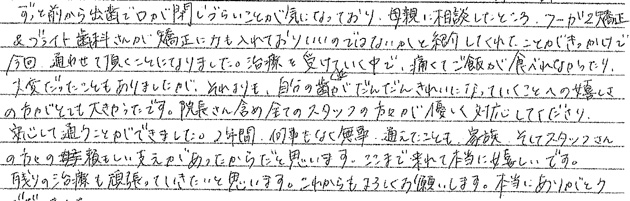 ずっと前から出歯で口が閉じづらいことが気になっており、母親に相談したところ、
&ブライト歯科さんが矯正に力も入れておりいいのではないかと紹介してくれたことがきっかけで
今回、通わせて頂くことになりました。治療を受けていく中で、痛くてご飯が食べれなかったり、
大変だったこともありましたが、それよりも、自分の歯がだんだんきれいになっていくことへの嬉しさ
の方がとても大きかったです。院長さん含め全てのスタッフの方々が優しく対応してくださり、
安心して通うことができました。2年間、何事もなく無事、通えたことも、家族、そしてスタッフさん
の方々の支えがあったからだと思います。ここまで来れて本当に嬉しいです。
残りの治療も頑張っていきたいと思います。これからもよろしくお願いします。本当にありがとう